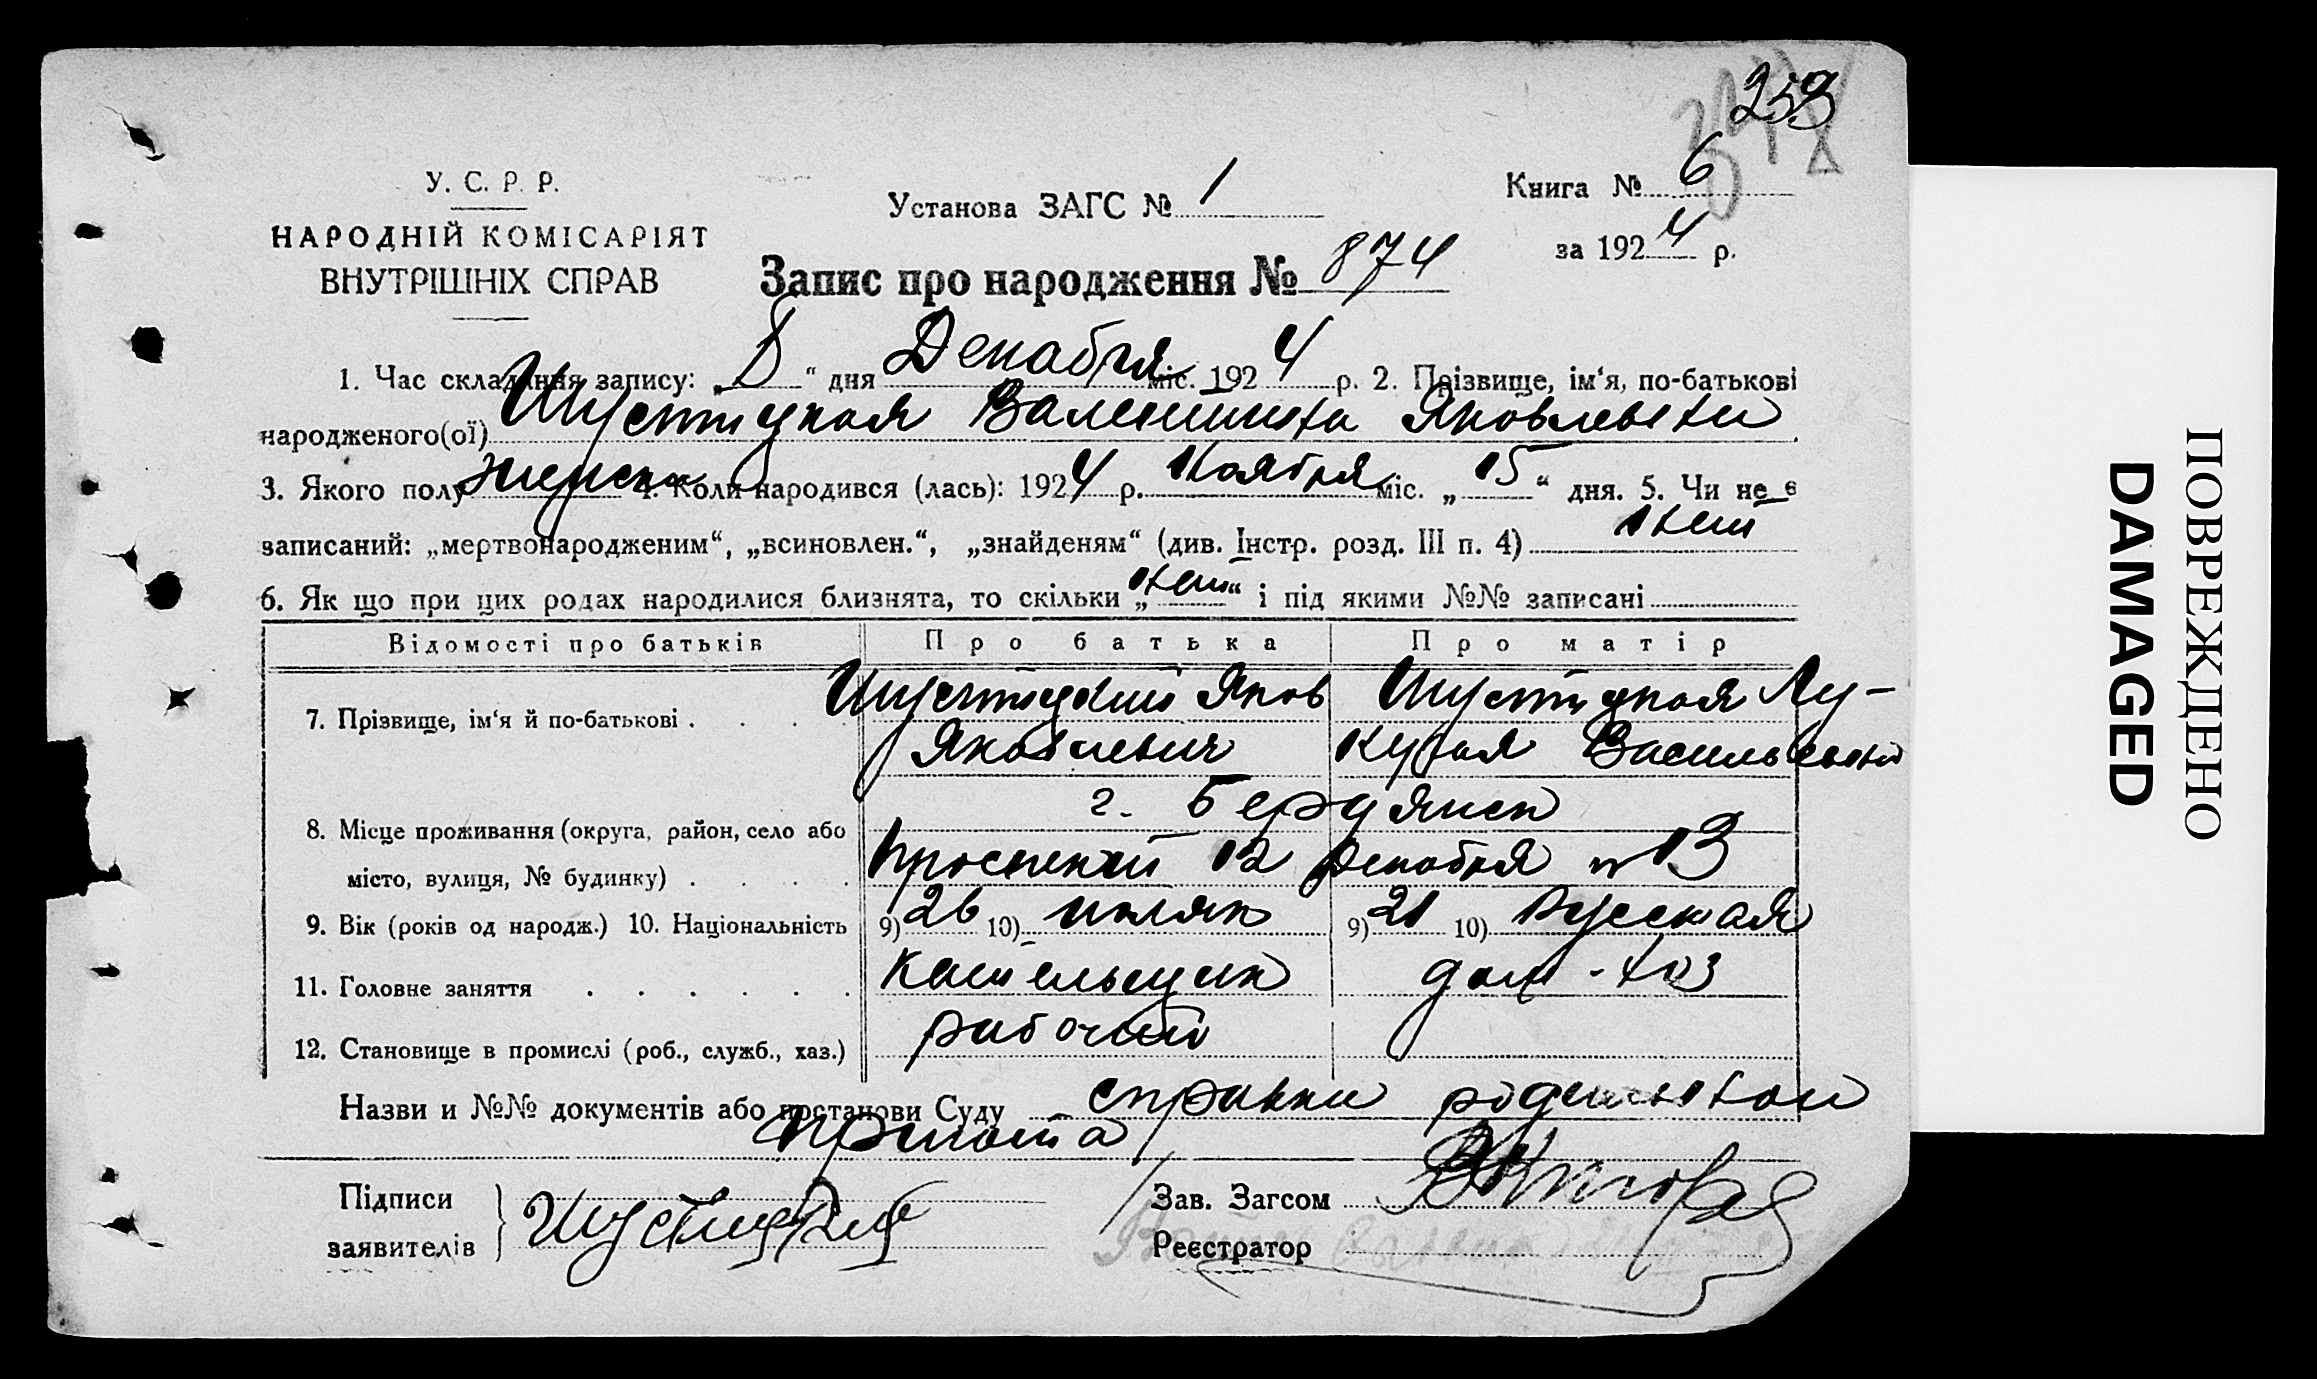 259
У. С. Р. Р.
НАРОДНІЙ КОМІСАРІЯТ
ВНУТРІШНІХ СПРАВ
Установа ЗАГС № 1
Книга № 6
за 1924 р.
Запис про народження № 874
1. Час складання запису: „ “ дня Декабря міс. 1924 р. 2. Прізвище, ім‘я, по-батькові
народженого(ої) Валентина Яковлевна
3. Якого полу женск 4. Коли народився (лась): 1924 р. Ноября міс. „15“ дня. 5. Чи не є
записаний: „мертвонародженим“, „всиновлен.“, „знайденям“ (див. Інстр. розд. III п. 4) нет
6. Як що при цих родах народилися близнята, то скільки „нет“ і під якими №№ записані
Відомості про батьків Про батька Про матір
7. Прізвище, ім‘я й по-батькові . . . Яков Лу-
Яковлевич керья Васильевна
г. Бердянск
8. Місце проживання (округа, район, село або
місто, вулиця, № будинку) . . . . Проспект 12 Декабря № 13
9. Вік (років од народж.) 10. Національність 9) 26 10) поляк 9) 21 10) Русская
11. Головне заняття . . . . . . Котельщик дом-хоз
12. Становище в промислі (роб., служб., хаз.) рабочий
Назви и №№ документів або постанови Суду справки родильного
приюта
Підписи
заявителів
Зав. Загсом
Реєстратор
ПОВРЕЖДЕНО
DAMAGED